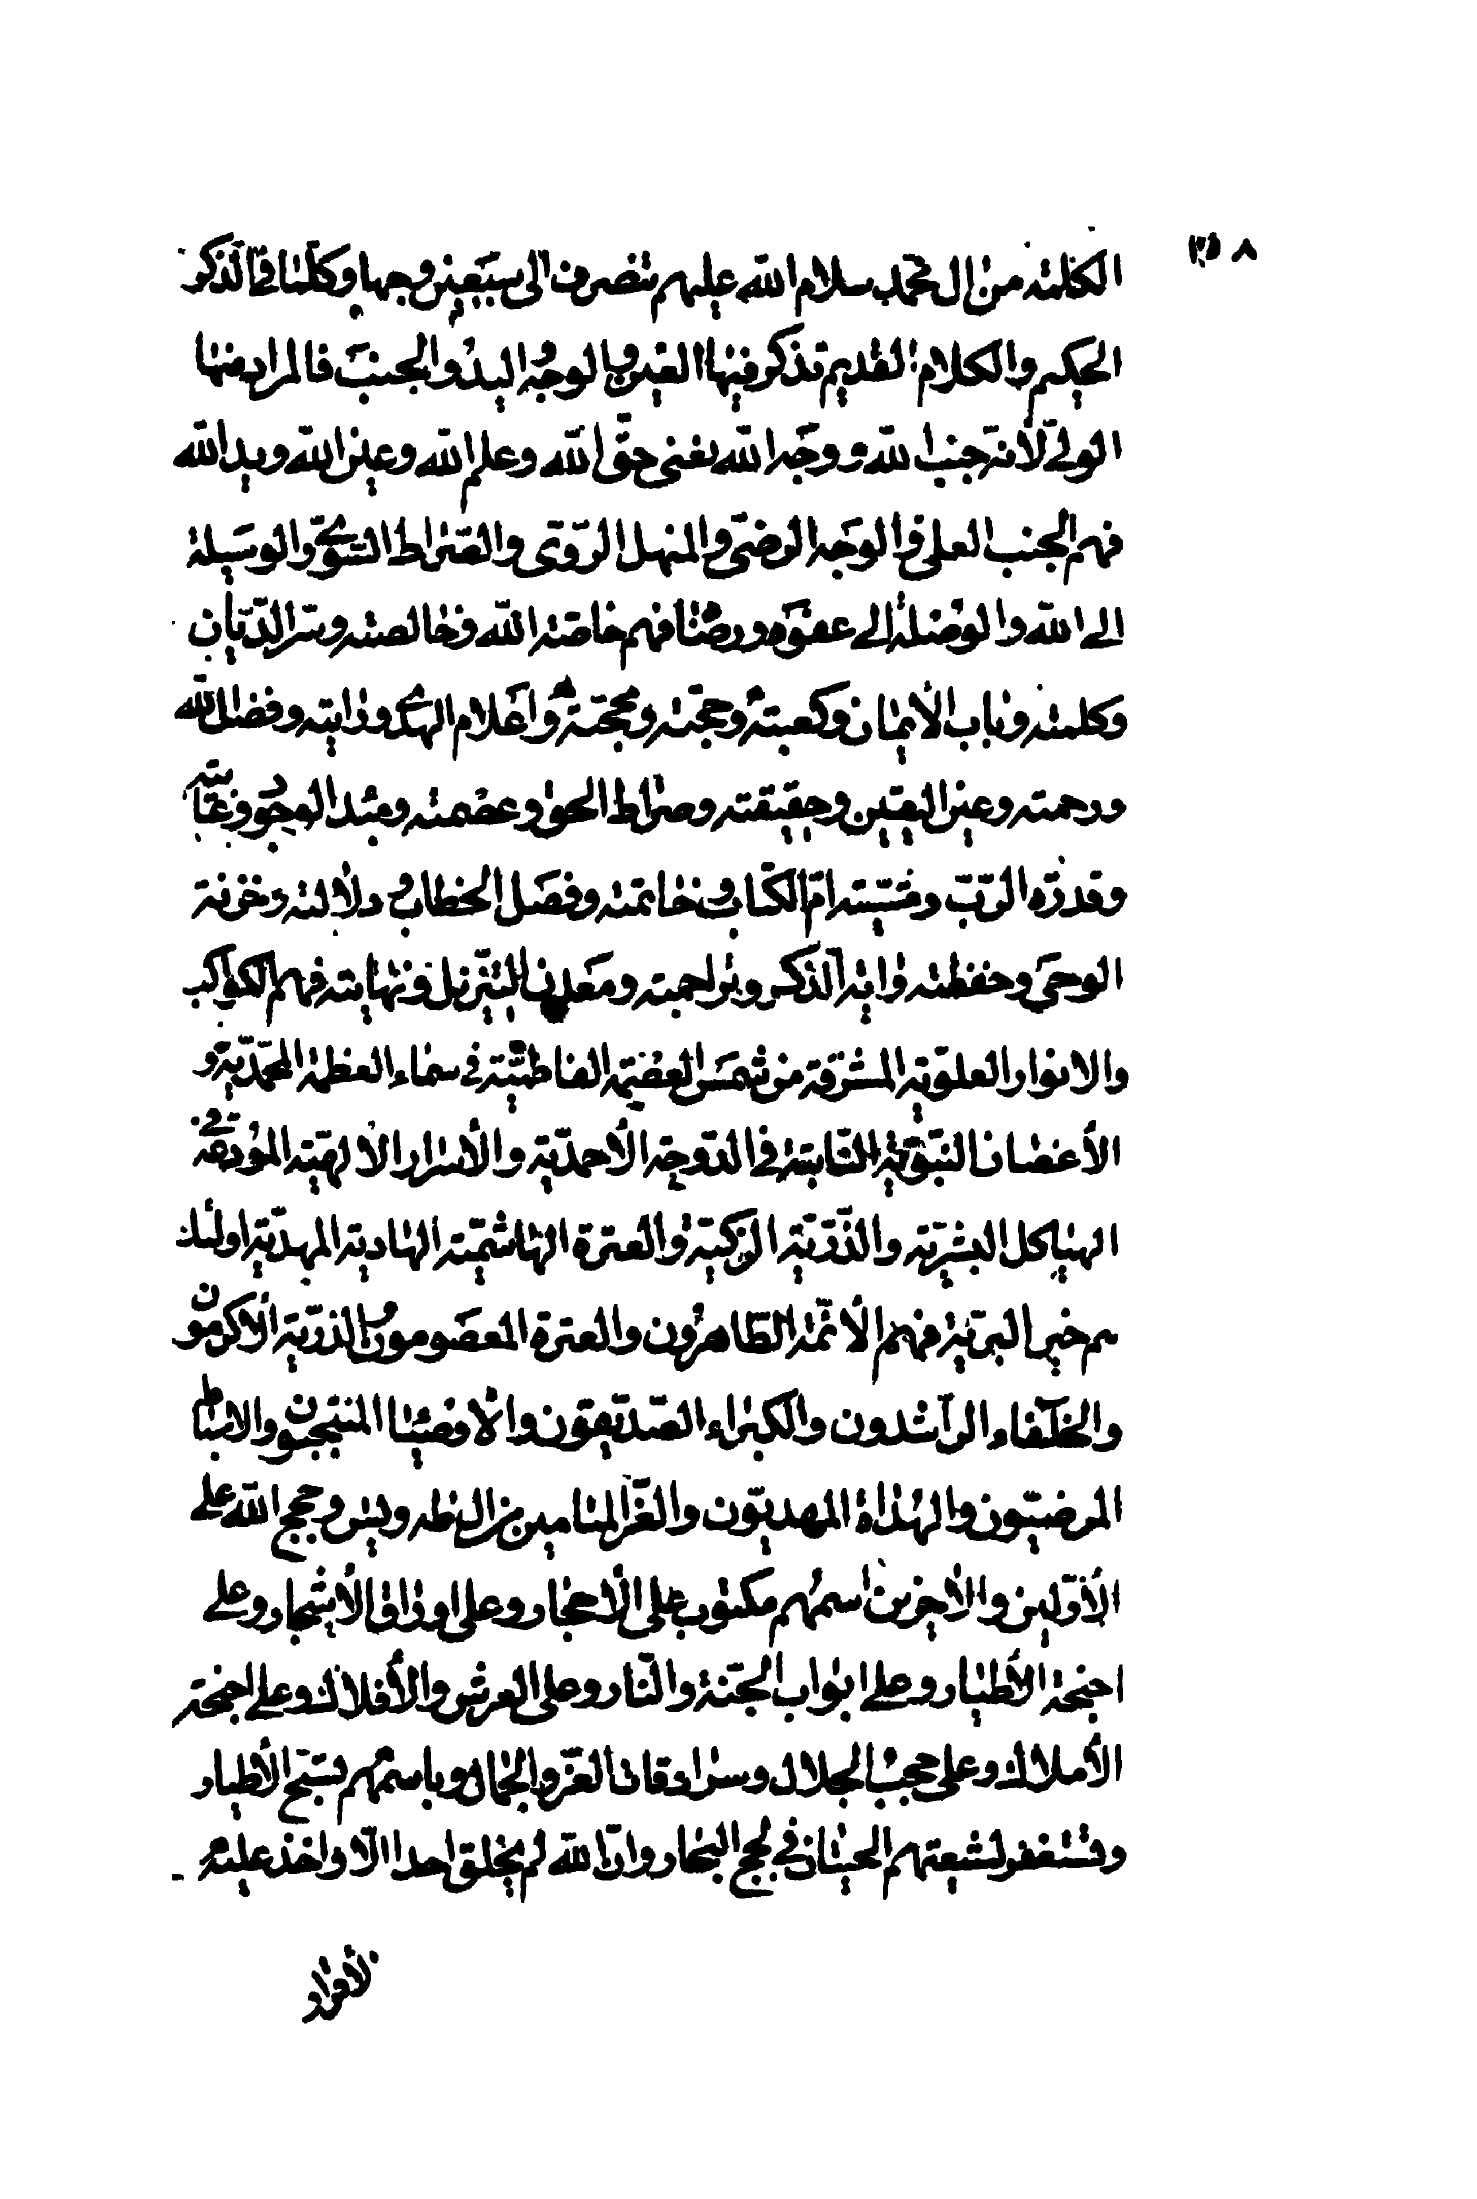 الكلمة من ال محمد سلام الله عليهم تتصرف الى سبعين وجها وكلما فى الذكر
الحكيم والكلام القديم تذكر فيها العين والوجه واليد والجنب فالمراد منها
الولى لانه جنب الله ووجه الله يعنى حق الله وعلم الله وعين الله ويد الله
فهم الجنب العلى والوجه الرضى والمنهل الروى والصراط السوى والوسيلة
الى الله والوصلة الى عفوه ورضاه فهم خاصة الله وخالصته وسر الديان
وكلمته وباب الايمان وكعبته وحجته ومحجته واعلام الهدى ورايته وفضل الله
ورحمته وعين اليقين وحقيقته وصراط الحق وعصمته ومبدا الوجود وغايته
وقدرة الرب ومشيته ام الكتاب وخاتمته وفصل الخطاب ودلالته وخزنة
الوحى وحفظته واية الذكر وتراجمته ومعدن التنزيل ونهايته فهم الكواكب
والانوار العلوية المشرقة من شمس العصمة الفاطمية فى سماء العظمة المحمدية و
الأغصان النبوية النابتة فى الدوحة الأحمدية والأسرار الالهية المودعة فى
الهياكل البشرية والذرية الزكية والعترة الهاشمية الهادية المهدية اولئك
هم خير البرية فهم الائمة الطاهرون والعترة المعصومون والذرية الأكرمون
والخلفاء الراشدون والكبراء الصديقون والأوصياء المنتجبون والاسباط
المرضيون والهداة المهديون والغر الميامين من ال طه ويس وحجج الله على
الأولين والأخرين اسمهم مكتوب على الأحجار وعلى اوراق الأشجار وعلى
اجنحة الأطيار وعلى ابواب الجنة والنار وعلى العرش والأفلاك وعلى اجنحة
الأملاك وعلى حجب الجلال وسرادقات العز والجمال وباسمهم تسبح الأطيار
وتستغفر لشيعتهم الحيتان فى لجج البحار وان الله لم يخلق احدا الا واخذ عليه